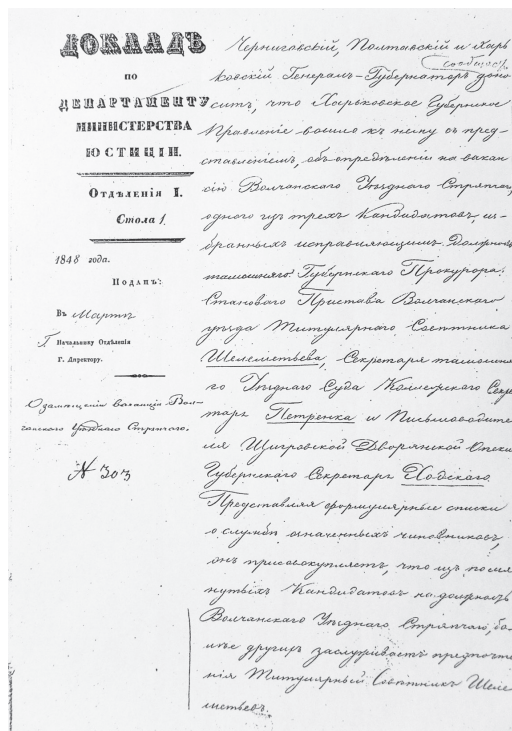 ДОКЛАДЪ
ПО
ДЕПАРТАМЕНТУ
МИНИСТЕРСТВА
ЮСТИЦІИ.
Отдѣленія I.
Стола 1.
1848 года.
Поданъ:
Въ Мартѣ
Г. Начальнику Отдѣленія
Г. Директору.
О замѣщеніи ваканціи Вол-
чанскаго Уѣзднаго Стряпчаго.
№ 303
Черниговскій, Полтавскій и Харь
ковскій Генералъ-Губернаторъ доно
ситъ, что Харьковское Губернское
Правленіе вошло къ нему съ пред-
ставленіемъ, объ опредѣленіи на вакан
сію Волчанскаго Уѣзднаго Стряпчаго,
одного изъ трехъ Кандидатовъ, из-
бранныхъ исправляющимъ должность
тамошняго Губернскаго Прокурора:
Становаго Пристава Волчанскаго
уѣзда Титулярнаго Совѣтника
Шелеметьева, Секретаря тамошня
го Уѣзднаго Суда Коллежскаго Секре
таря Петренка и Письмоводите
ля Щигровской Дворянской Опеки
Губернскаго Секретаря Ходскаго.
Представляя формулярные списки
о службѣ означенныхъ чиновниковъ,
онъ присовокупляетъ, что изъ помя
нутыхъ Кандидатовъ на должность
Волчанскаго Уѣзднаго Стряпчаго, бо
лѣе другихъ заслуживаетъ предпочте
нія Титулярный Совѣтникъ Шеле
метьевъ.